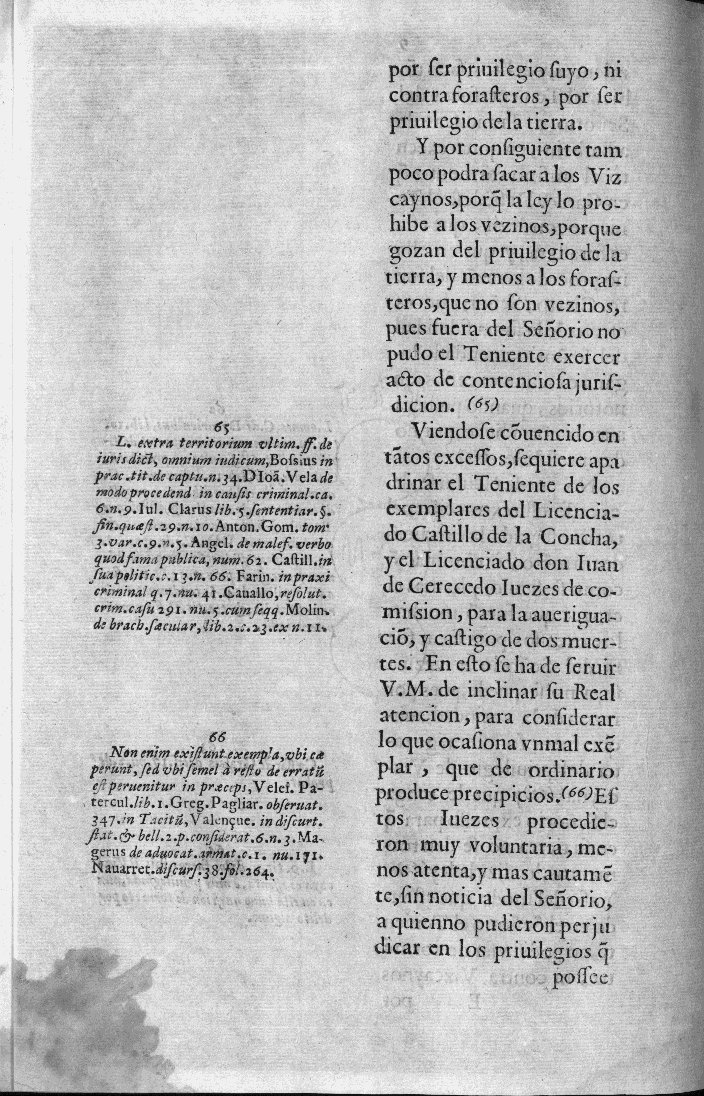 por ser priuilegio suyo, ni
contra forasteros, por ser
priuilegio de la tierra.
Y por consiguiente tam
poco podra sacar a los Viz
caynos, porq̃ la ley lo pro-
hibe a los vezinos, porque
gozan del priuilegio de la
tierra, y menos a los foras-
teros, que no son vezinos,
pues fuera del Señorio no
pudo el Teniente exercer
acto de contenciosa juris-
dicion. (65)
Viendose cõuencido en
tãtos excessos, sequiere apa
drinar el Teniente de los
exemplares del Licencia-
do Castillo de la Concha,
y el Licenciado don Iuan
de Cerecedo Iuezes de co-
mission, para la auerigua-
ciõ, y castigo de dos muer-
tes. En esto se ha de seruir
V.M. de inclinar su Real
atencion, para considerar
lo que ocasiona vnmal exẽ
plar, que de ordinario
produce precipicios. (66) Es
tos Iuezes procedie-
ron muy voluntaria, me-
nos atenta, y mas cautamẽ
te, sin noticia del Señorio,
a quienno pudieron perju
dicar en los priuilegios q̃
possee
65
L. extra territorium vltim. ff. de
iuris dict, omnium iudicum, Bossius in
prac. tit. de captu. n. 34. D Ioã. Vela de
modo procedend in causis criminal. ca.
6. n. 9. Iul. Clarus lib. 5. sententiar. §.
fin. quæst. 29. n. 10. Anton. Gom. tom.
3. var. c. 9. n. 5. Angel. de malef. verbo
quod fama publica, num. 62. Castill. in
sua politic. c. 13. n. 66. Farin. in praxi
criminal q. 7. nu. 41. Cauallo, resolut.
crim. casu 291. nu. 5. cum seqq. Molin.
de brach. sæcular, lib. 2. c. 23. ex n. 11.
66
Non enim existunt exempla, vbi cæ
perunt, sed vbi semel à recto de erratũ
est peruenitur in præceps, Velei. Pa-
tercul. lib. 1. Greg. Pagliar. obseruat.
347. in Tacitũ, Valençue. in discurt.
stat. & bell. 2. p. considerat. 6. n. 3. Ma-
gerus de aduocat. armat. c. 1. nu. 171.
Nauarret. discurs. 38. fol. 264.